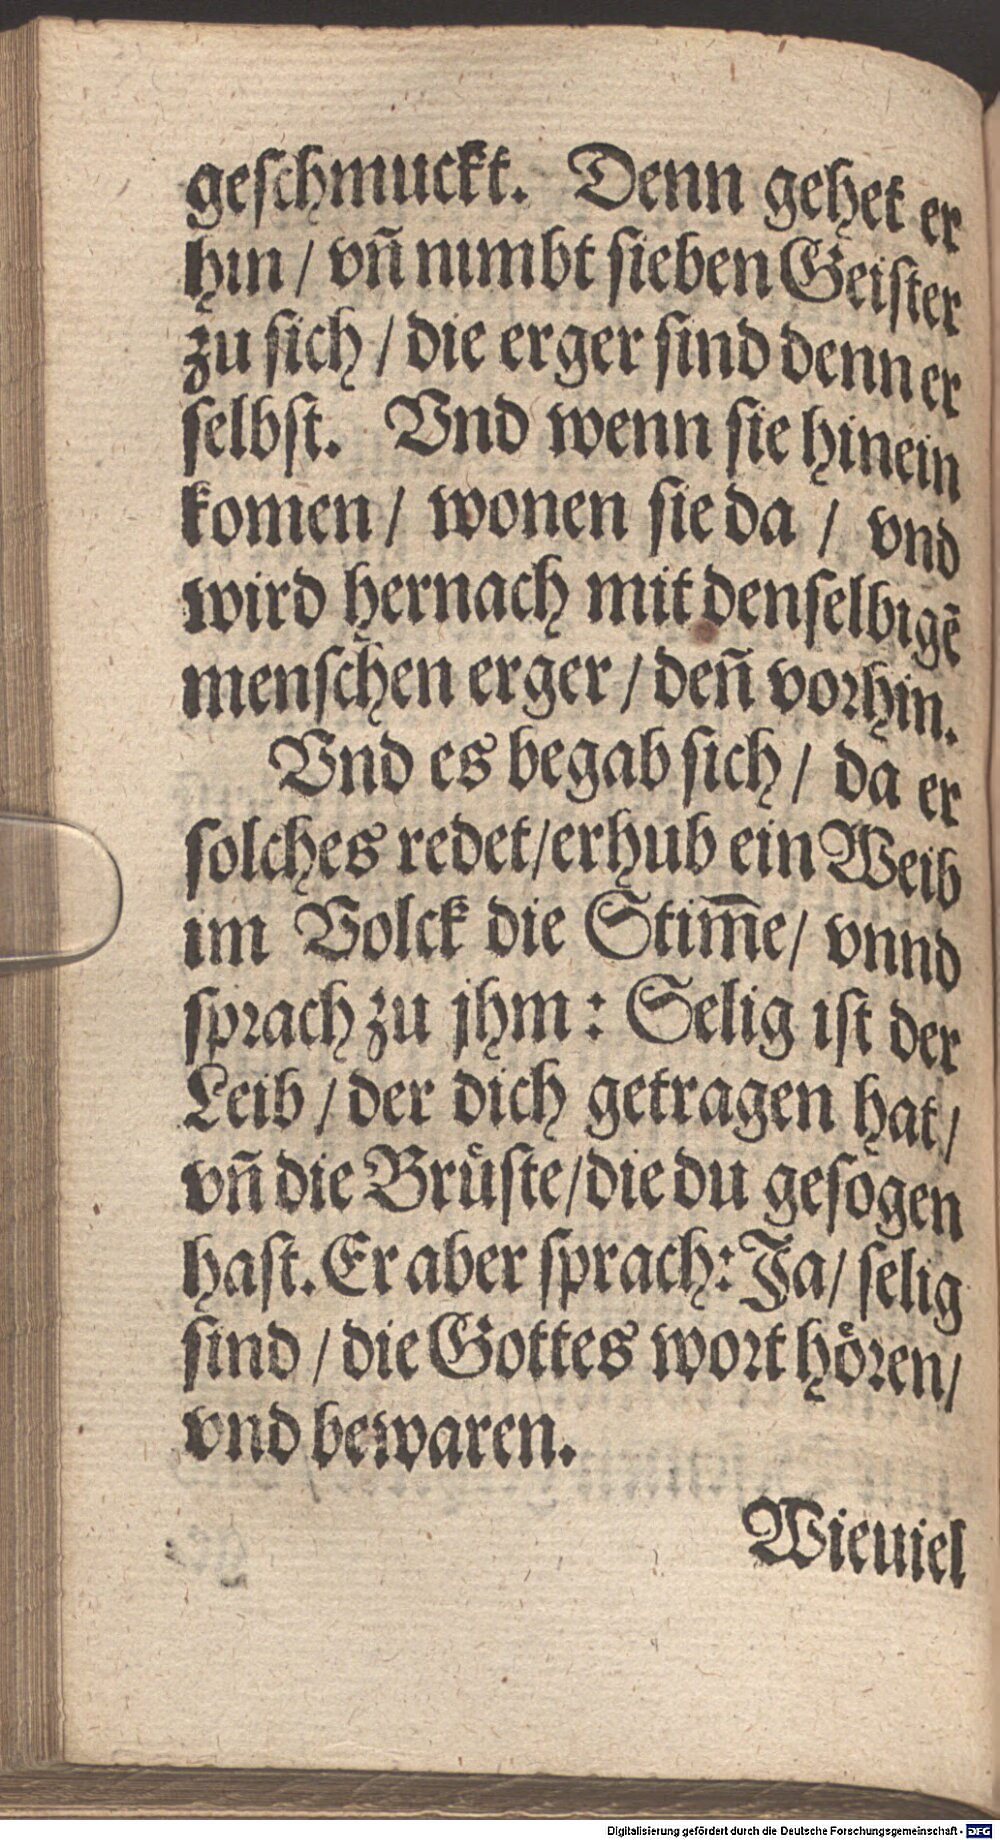 geschmuckt. Denn gehet er
hin / vn̄ nimbt sieben Geister
zu sich / die erger sind denn er
selbst. Vnd wenn sie hinein
komen / wonen sie da / vnd
wird hernach mit denselbigē
menschen erger / den̄ vorhin.
Vnd es begab sich / da er
solches redet / erhub ein Weib
im Volck die Stim̄e / vnnd
sprach zu jhm : Selig ist der
Leib / der dich getragen hat /
vn̄ die Brüste / die du gesogen
hast. Er aber sprach: Ja / selig
sind / die Gottes wort hören /
vnd bewaren.
Wieuiel
Digitalisierung gefördert durch die Deutsche Forschungsgemeinschaft - DFG